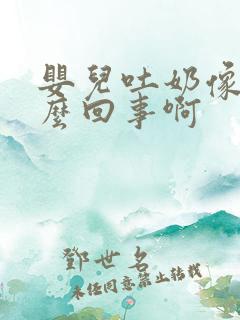 嬰兒吐奶像
麼回事啊
鄧世名
未經同意禁止轉載